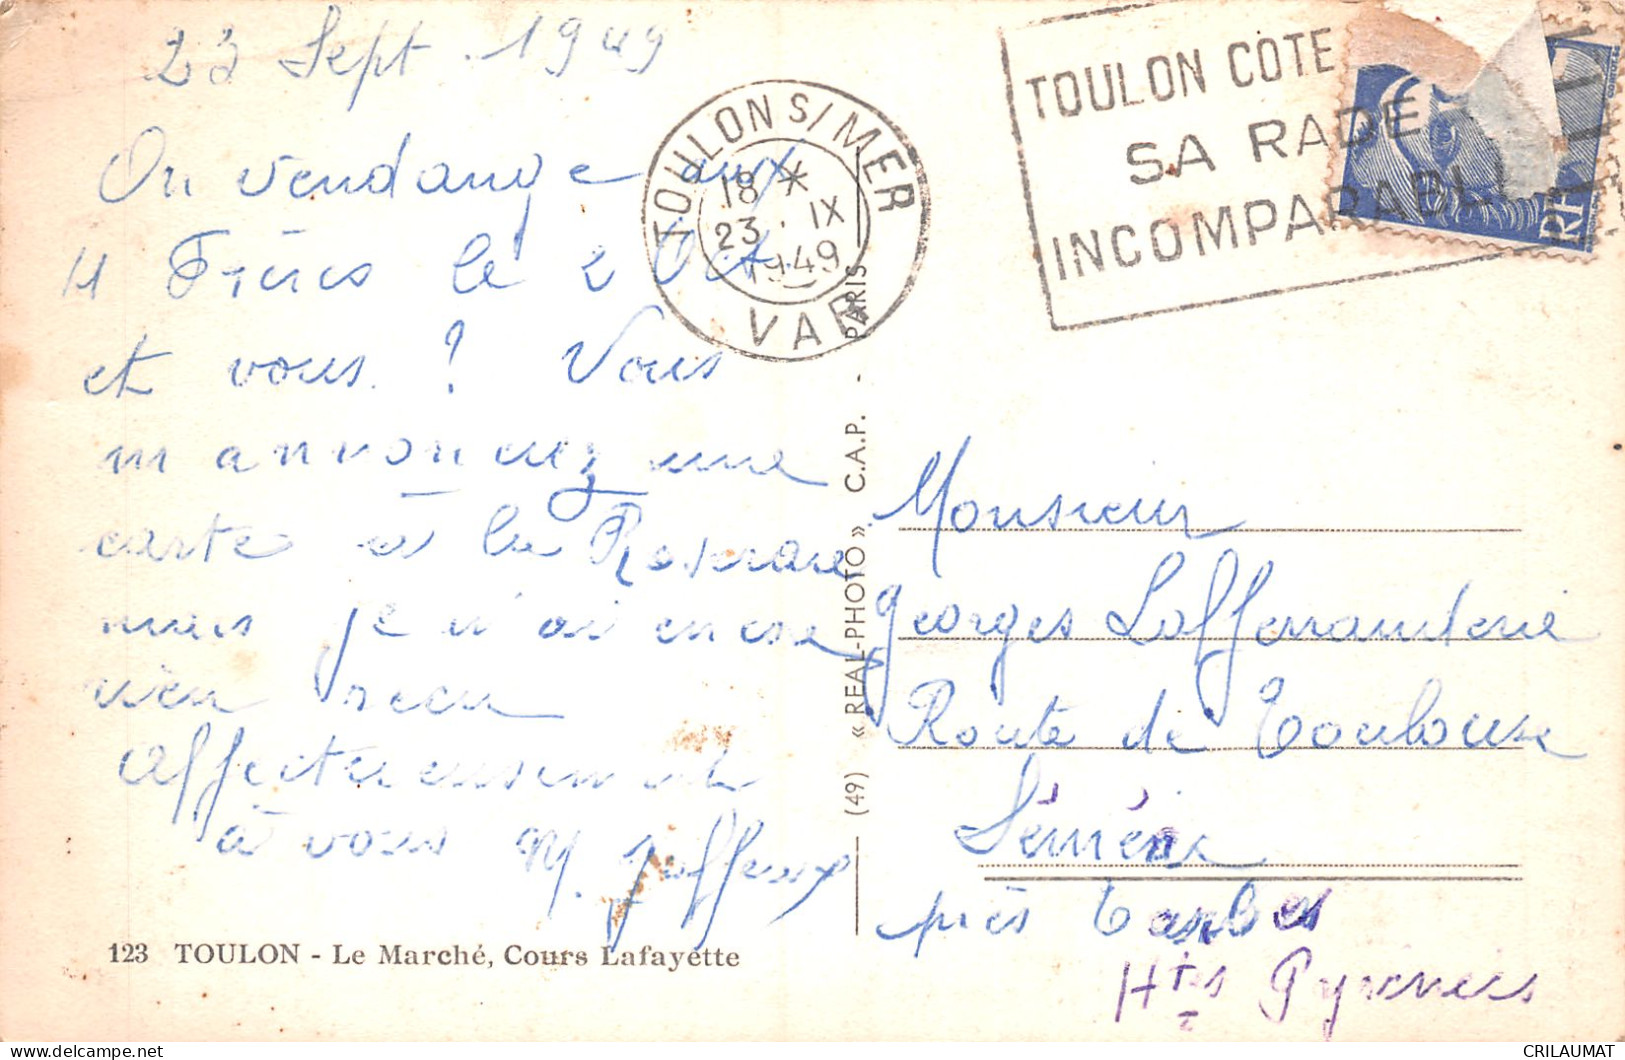 23 Sept. 1949
On vendange aux
4 Frères le 2 Oct.
et vous ? Vous
m'annonciez une
carte à la Roseraie
mais je n'ai encore
rien recu
affectueusement
à vous M.
TOULON S/MER
18 *
23. IX
1949
VAR
TOULON COTE
SA RADE
INCOMPARABLE
RF
(49) « REAL-PHOTO » C.A.P. - PARIS
Monsieur
Georges Lafferranderie
Route de Toulouse
Séméac
près Tarbes
Htes Pyrenées
123 TOULON - Le Marché, Cours Lafayette
CRILAUMAT